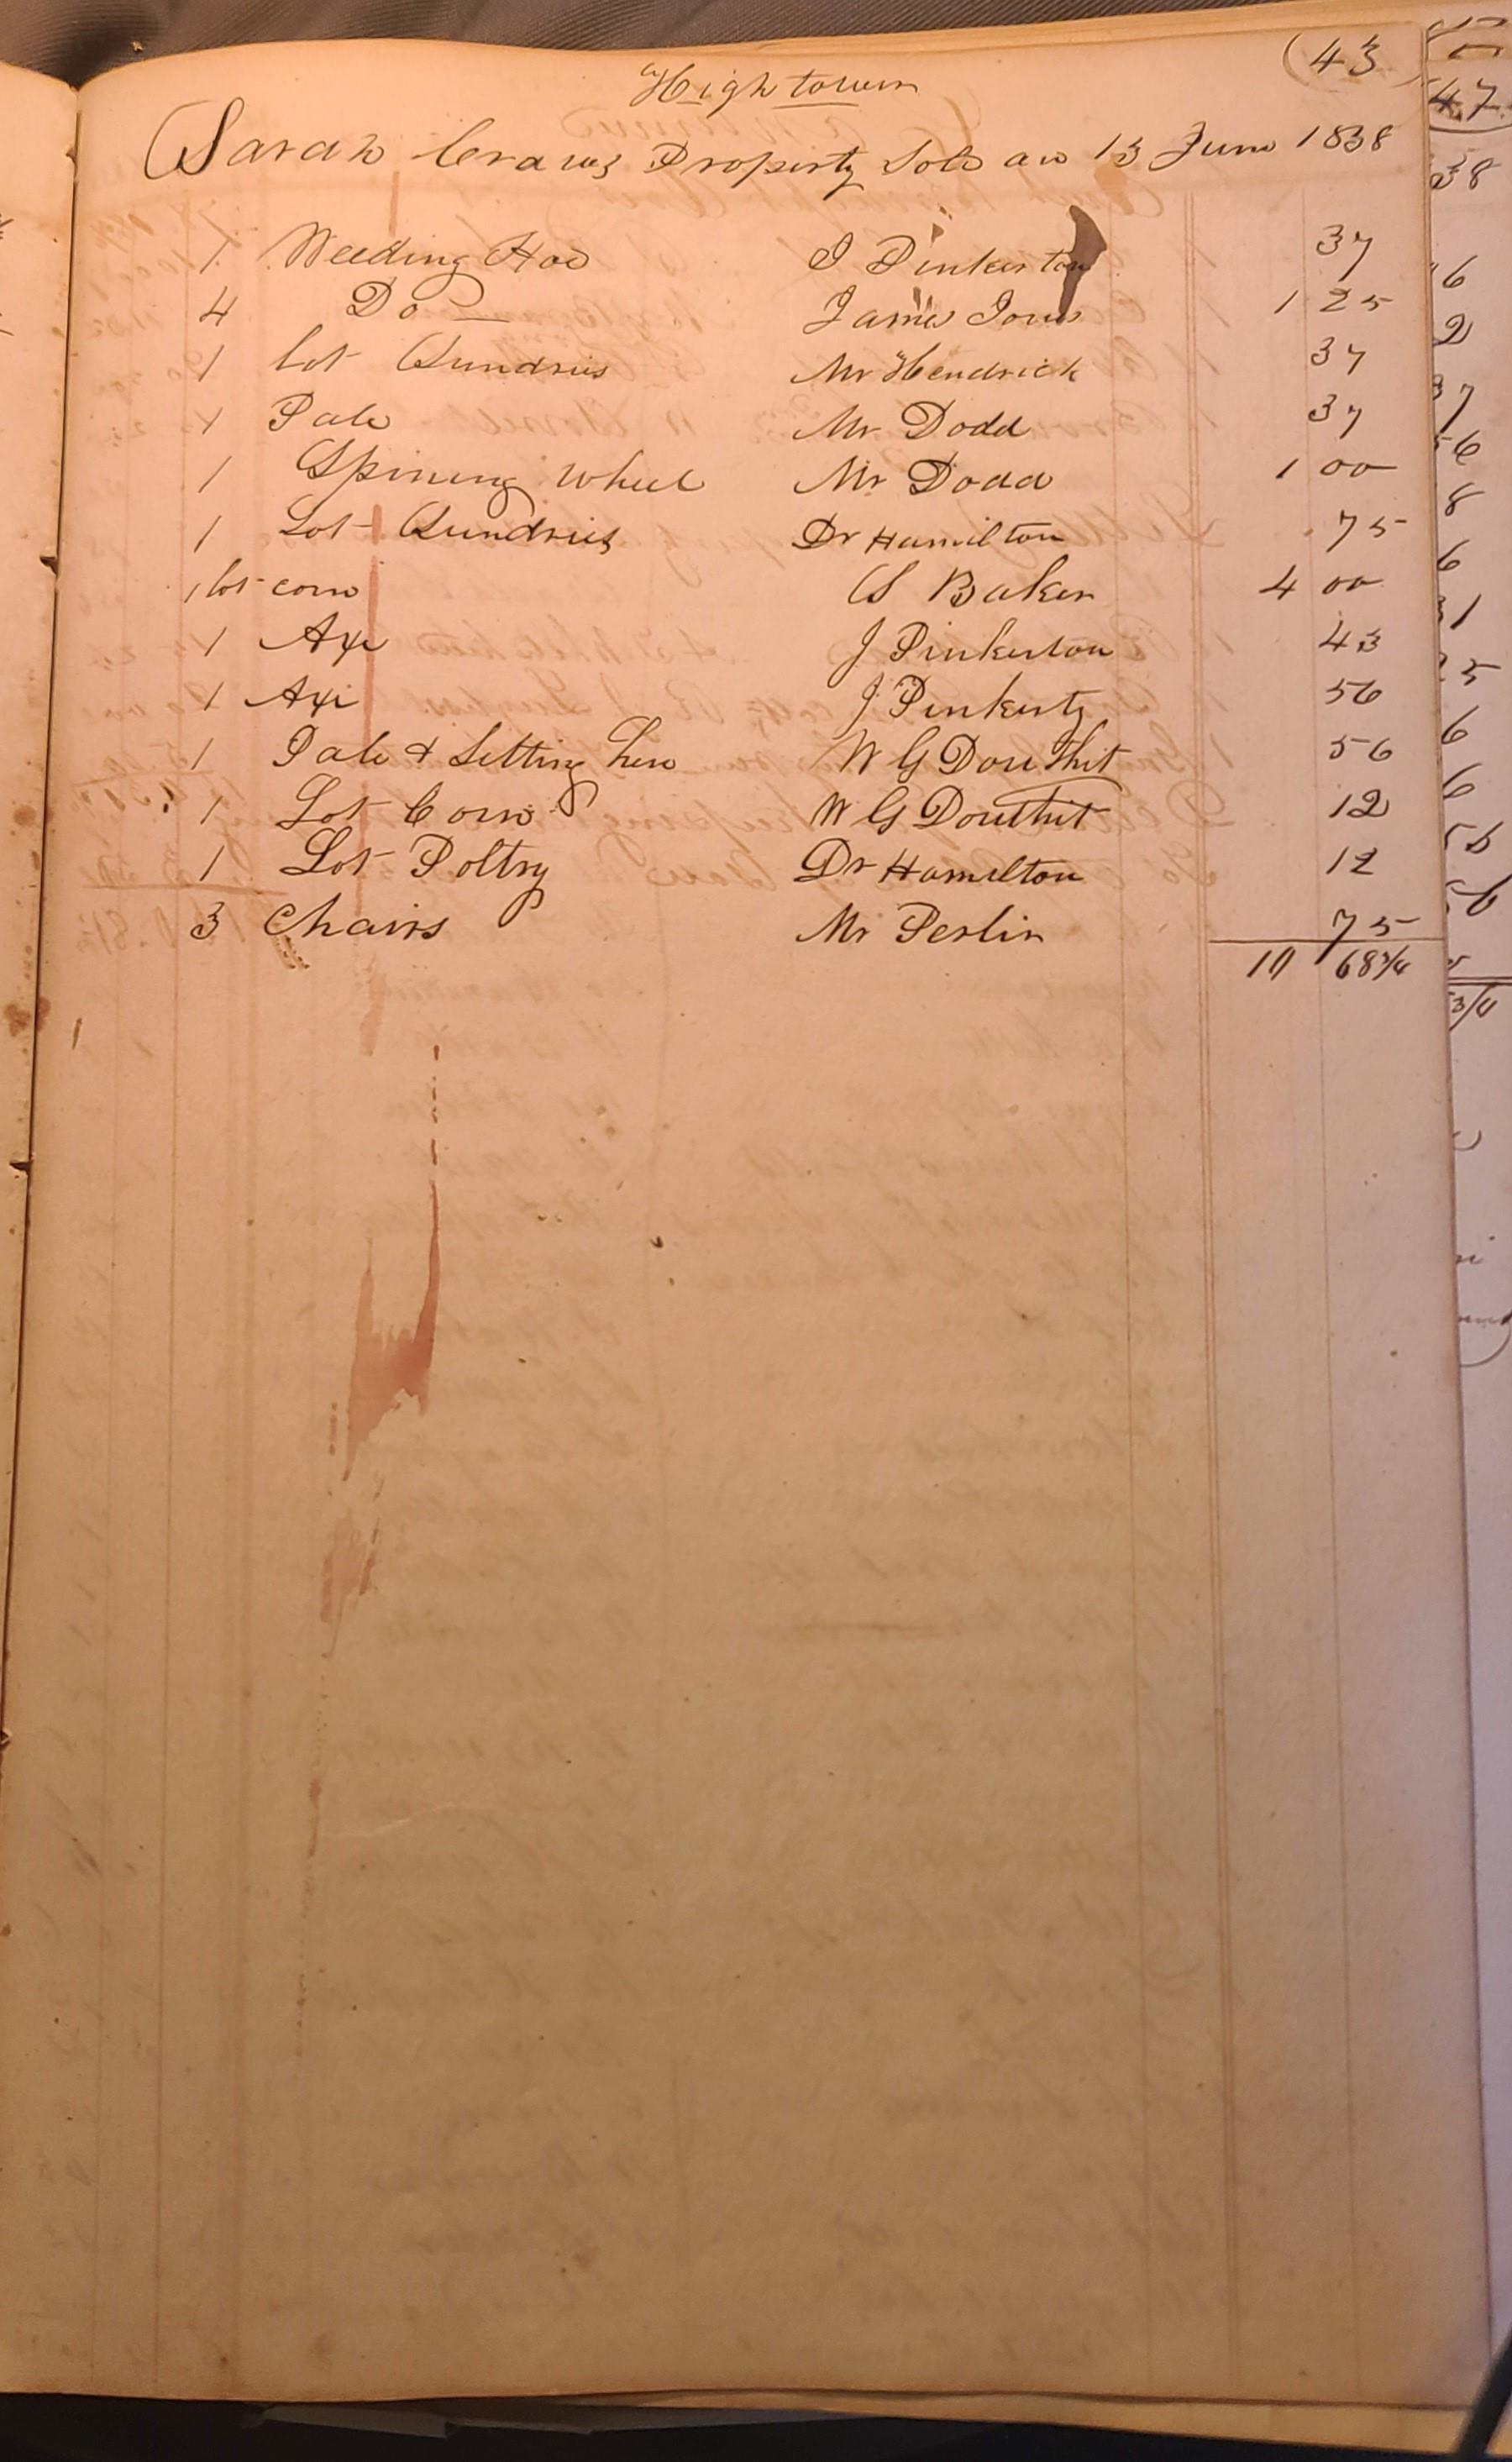 (43)
Hightown
Sarah Craws Property Sold on 13 June 1838
1 Weeding Hoe J Pinkerton 37
4 Do — James Jones 1 25
1 lot Sundries Mr Hendrick 37
1 Pale Mr Dodd 37
1 Spining Wheel Mr Dodd 1 00
1 Lot Sundries Dr Hamilton 75
1 lot corn S Baker 4 00
1 Axe J Pinkerton 43
1 Axe J Pinkerty 56
1 Pale & Setting hen W G Douthit 56
1 Lot Corn W G Douthit 12
1 Lot Poltry Dr Hamilton 12
3 Chairs Mr Perlin 75
10 68 3/4